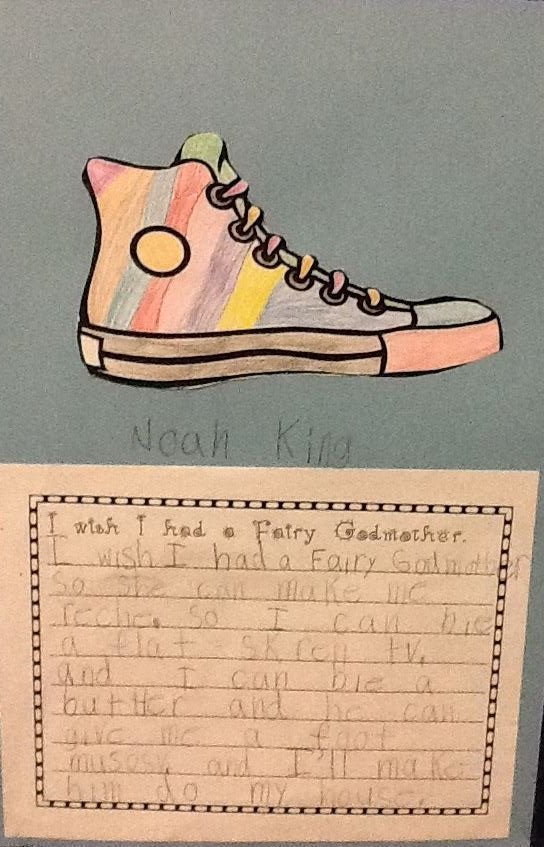 Noah King
I wish I had a Fairy Godmother.
I wish I had a Fairy Godmother
so she can make me
reche. so I can bie
a flat skren tv.
and I can bie a
buttler and he can
give me a foot
musosh and I'll make
him do my house.